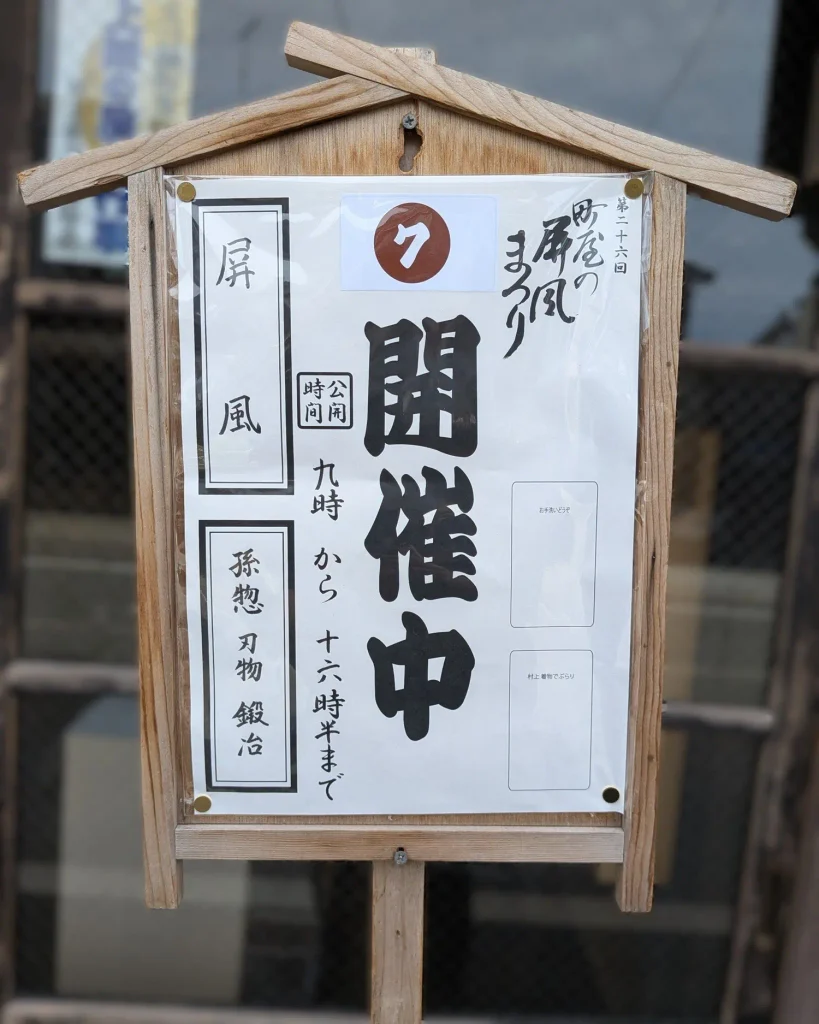 第二十六回
町屋の
屏風
まつり
お手洗いどうぞ
村上 着物でぶらり
ク
開催中
公開
時間
九時 から 十六時半まで
屏風
孫惣 刃物 鍛冶